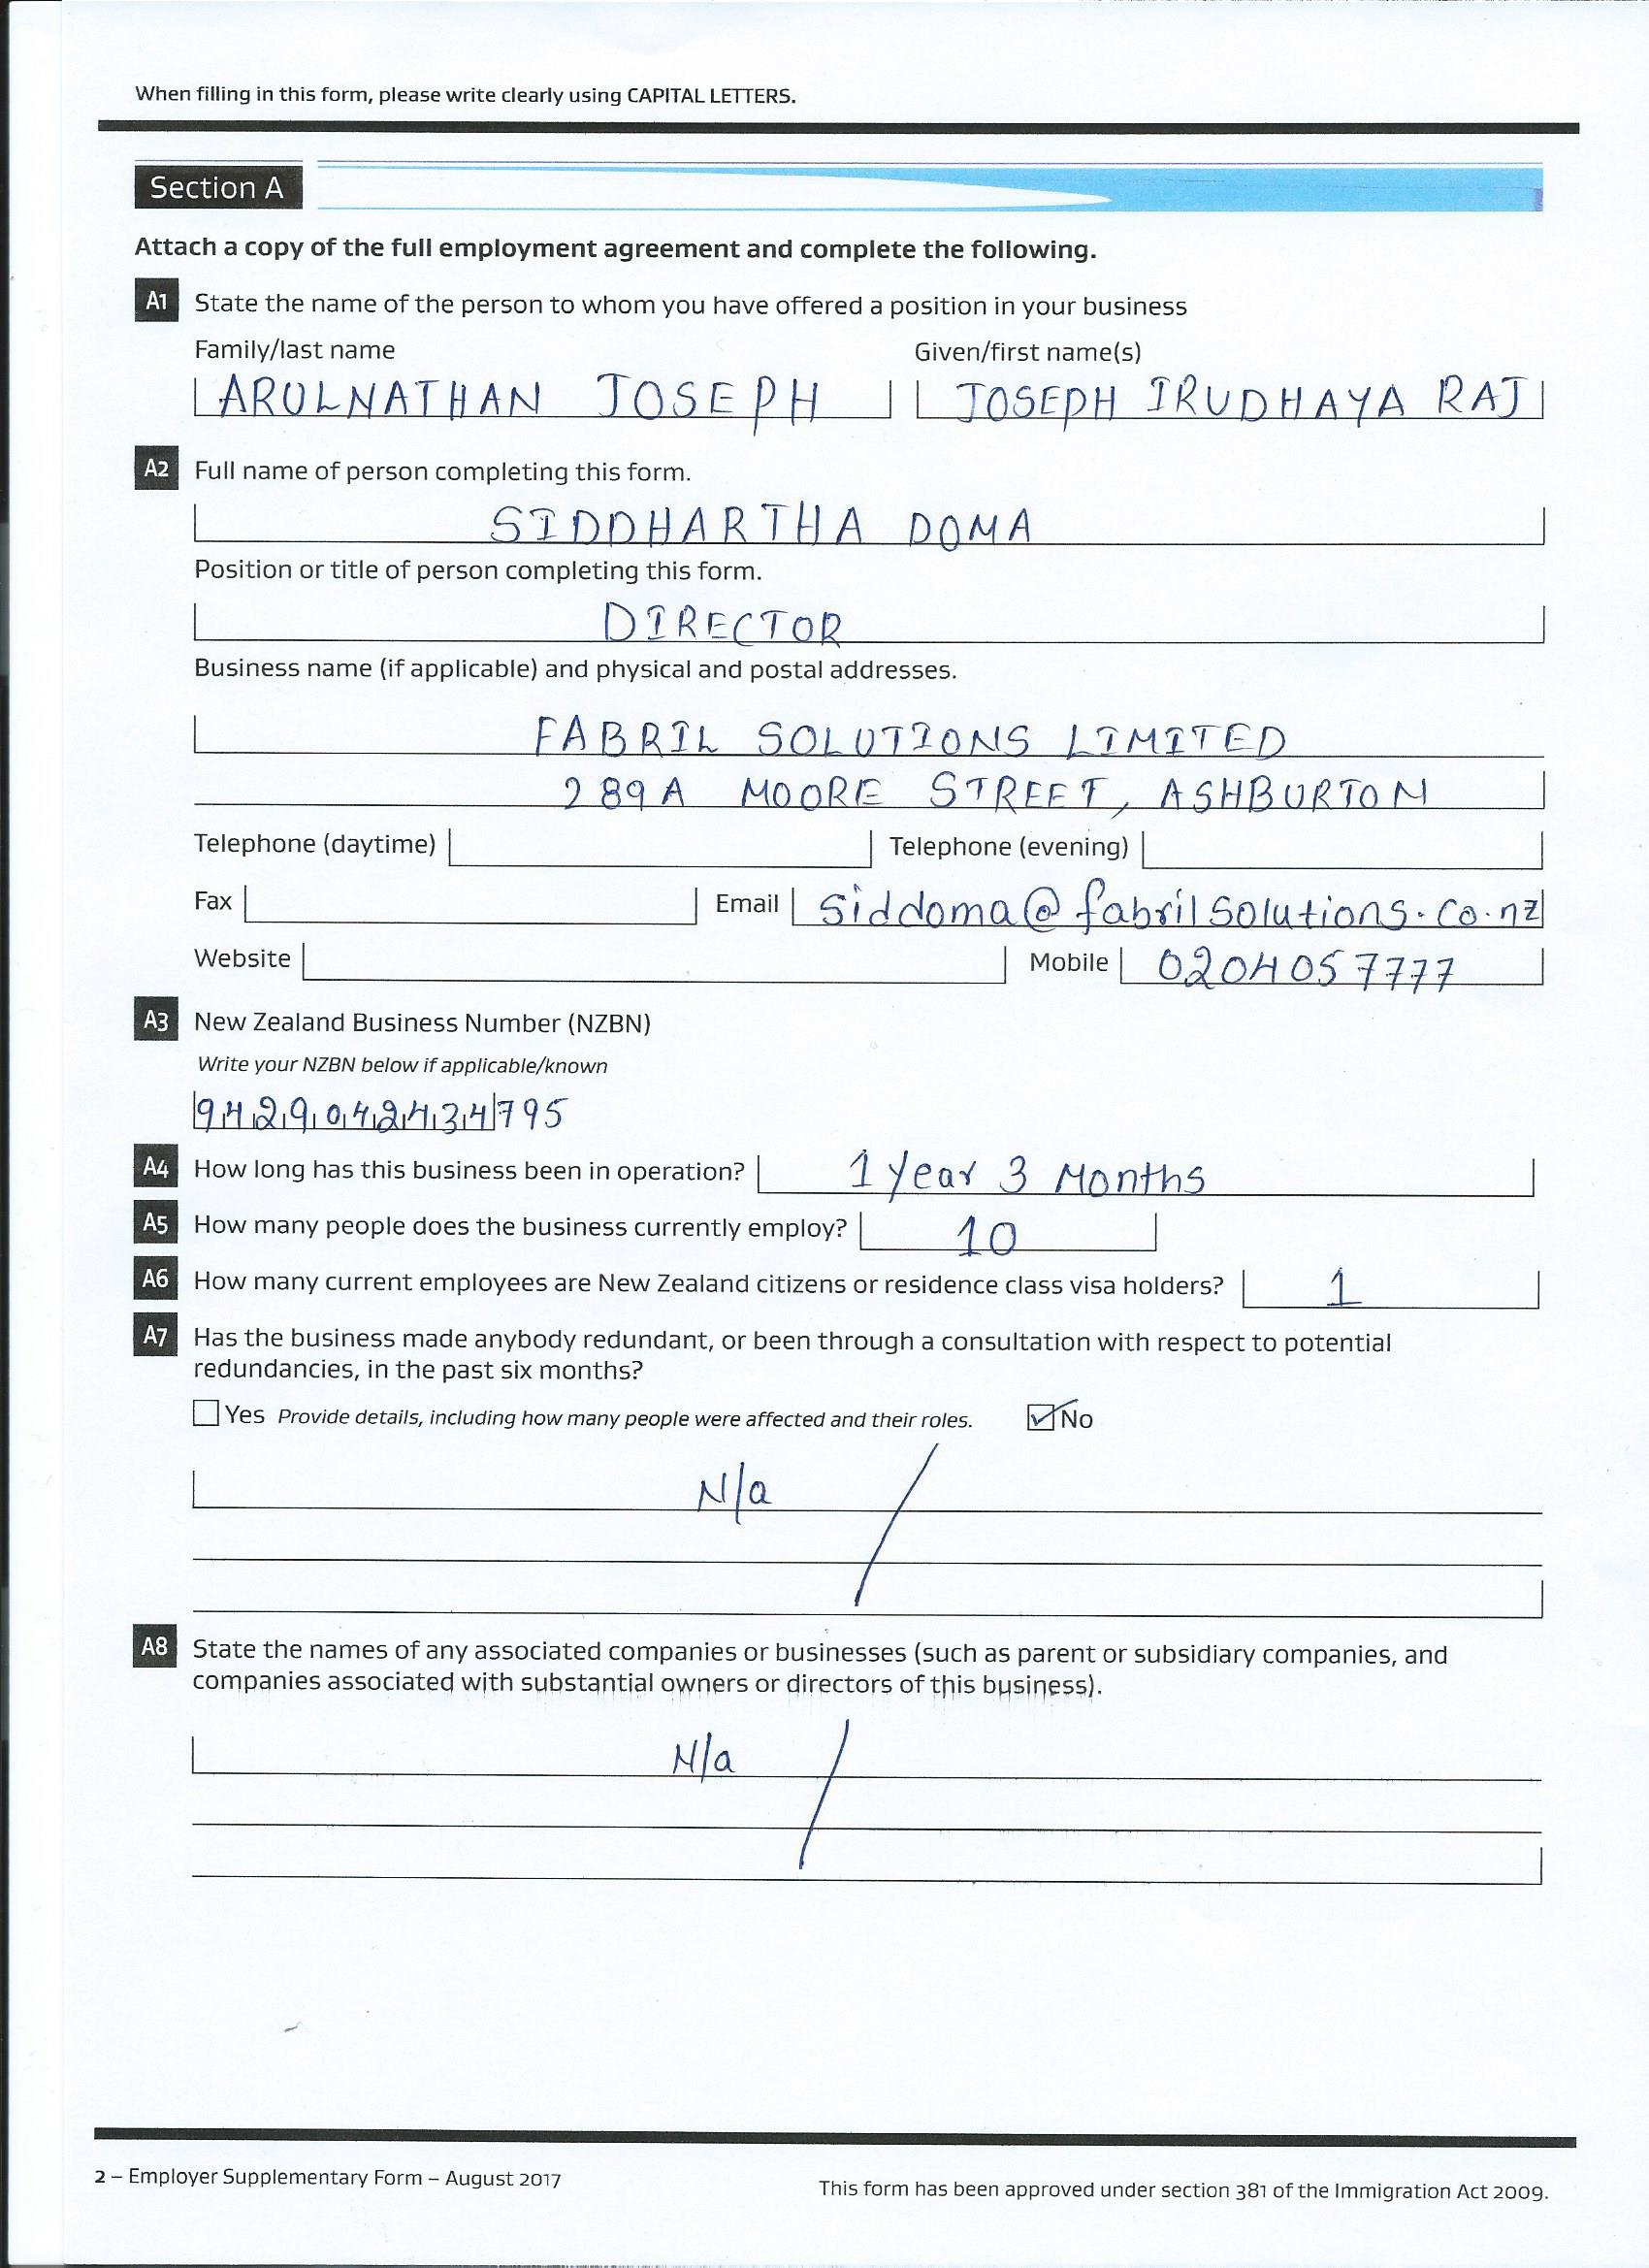 When filling in this form, please write clearly using CAPITAL LETTERS.
Section A
Attach a copy of the full employment agreement and complete the following.
A1 State the name of the person to whom you have offered a position in your business
Family/last name Given/first name(s)
ARULNATHAN JOSEPH JOSEPH IRUDHAYA RAJ
A2 Full name of person completing this form.
SIDDHARTHA DOMA
Position or title of person completing this form.
DIRECTOR
Business name (if applicable) and physical and postal addresses.
FABRIL SOLUTIONS LIMITED
289A MOORE STREET, ASHBURTON
Telephone (daytime) Telephone (evening)
Fax Email siddoma@fabrilsolutions.co.nz
Website Mobile 0204057777
A3 New Zealand Business Number (NZBN)
Write your NZBN below if applicable/known
9429042434795
A4 How long has this business been in operation? 1 year 3 Months
A5 How many people does the business currently employ? 10
A6 How many current employees are New Zealand citizens or residence class visa holders? 1
A7 Has the business made anybody redundant, or been through a consultation with respect to potential
redundancies, in the past six months?
Yes Provide details, including how many people were affected and their roles. No
N/a
A8 State the names of any associated companies or businesses (such as parent or subsidiary companies, and
companies associated with substantial owners or directors of this business).
N/a
2 – Employer Supplementary Form – August 2017
This form has been approved under section 381 of the Immigration Act 2009.